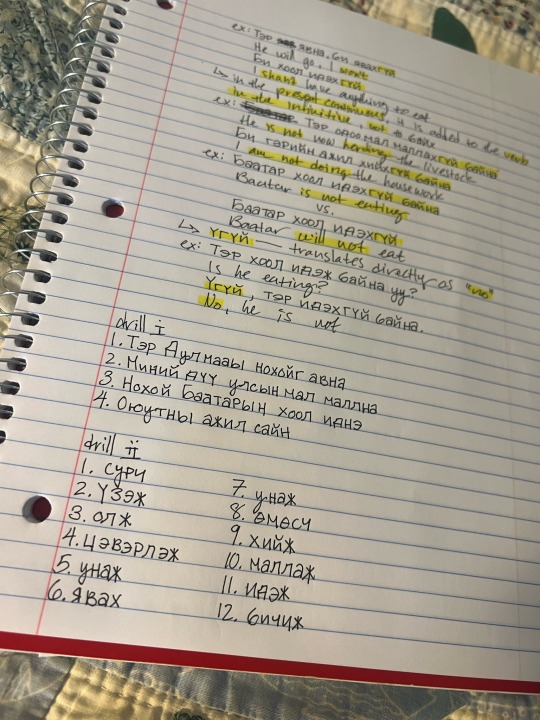 ex: Тэр явна. Би явахгүй
He will go, I won't
Би хоол идэхгүй
I shant have anything to eat
↳ in the present continuous, it is added to the verb
in the intuitive, not to байх
ex: Тэр одоо мал маллахгүй байна
He is not now herding the livestock
Би гэрийн ажил хийхгүй байна
I am not doing the housework
ex: Баатар хоол идэхгүй байна
Baatar is not eating
vs.
Баатар хоол идэхгүй
Baatar will not eat
↳ Үгүй — translates directly as "no"
ex: Тэр хоол идэж байна уу?
Is he eating?
Үгүй, тэр идэхгүй байна.
No, he is not
drill i
1. Тэр Дулмааы нохойг авна
2. Миний дүү улсын мал маллна
3. Нохой Баатарын хоол иднэ
4. Оюутны ажил сайн
drill ii
1. сурч
2. үзэж
3. олж
4. цэвэрлэж
5. унаж
6. явах
7. унаж
8. өмөсч
9. хийж
10. маллаж
11. идэж
12. бичиж